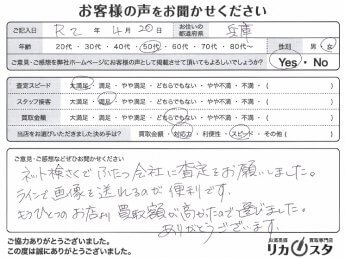 お客様の声をお聞かせください
ご記入日 R2年 4月 20日 お住いの都道府県 兵庫
年齢 20代・30代・40代・50代・60代・70代・80代〜 性別 男・女
ご意見・ご感想を弊社ホームページにお客様の声として掲載させて頂いてもよろしいでしょうか? Yes・No
査定スピード 大満足・満足・やや満足・どちらでもない・やや不満・不満・( )
スタッフ接客 大満足・満足・やや満足・どちらでもない・やや不満・不満・( )
買取金額 大満足・満足・やや満足・どちらでもない・やや不満・不満・( )
当店をお選びいただきました決め手は? 買取金額・対応力・利便性・スピード・その他( )
ご意見・ご感想などぜひお聞かせください。
ネット検さくでふたつ会社に査定をお願いしました。
ラインで画像を送れるのが便利です。
もうひとつのお店より買取額が高かったので選びました。
ありがとうございます。
ご協力ありがとうございました。
この度は誠にありがとうございました。
お酒高価 買取専門店
リカスタ